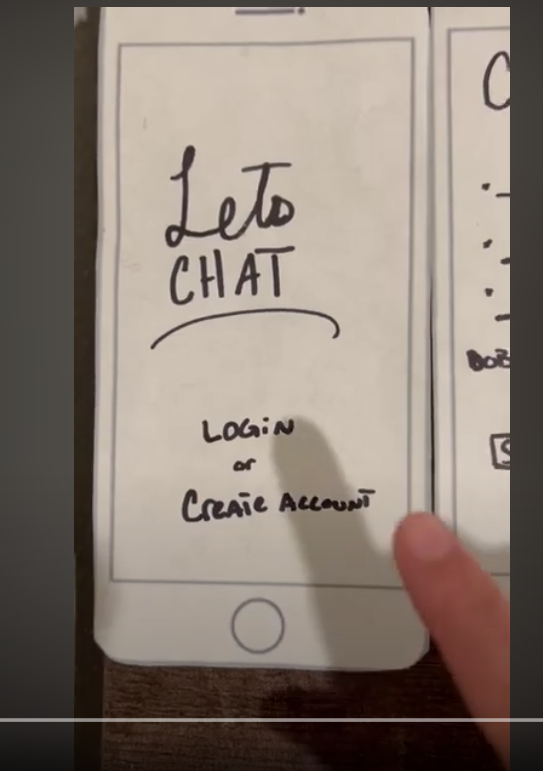 Lets
CHAT
LOGiN
or
CREATE ACCOUNT
C
DOB
S